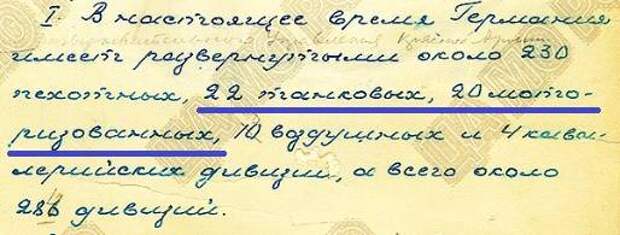 I. В настоящее время Германия
имеет развернутыми около 230
пехотных, 22 танковых, 20 мото-
ризованных, 10 воздушных и 4 кава-
лерийских дивизии, а всего около
286 дивизий.